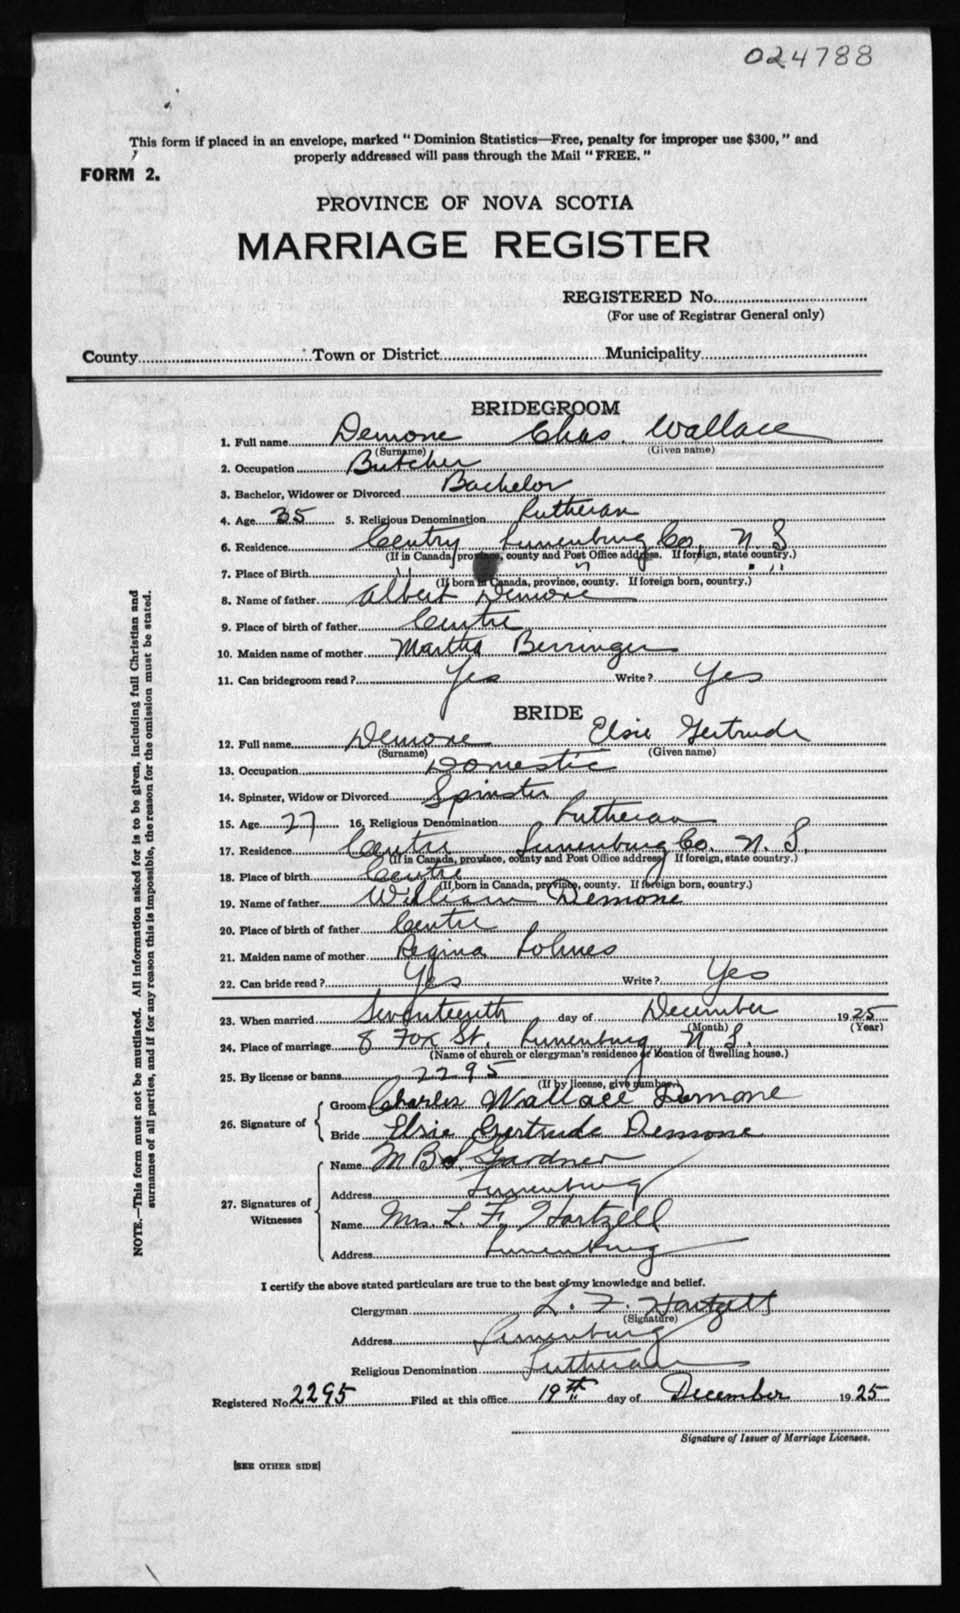 024788
This form if placed in an envelope, marked "Dominion Statistics—Free, penalty for improper use $300," and
properly addressed will pass through the Mail "FREE."
FORM 2.
PROVINCE OF NOVA SCOTIA
MARRIAGE REGISTER
REGISTERED No.
(For use of Registrar General only)
County Town or District Municipality
BRIDEGROOM
1. Full name Demone Chas. Wallace
(Surname) (Given name)
2. Occupation Butcher
3. Bachelor, Widower or Divorced Bachelor
4. Age 35 5. Religious Denomination Lutheran
6. Residence Lunenburg Co, N. S
(If in Canada, province, county and Post Office address. If foreign, state country.)
7. Place of Birth " " " "
(If born in Canada, province, county. If foreign born, country.)
8. Name of father Albert Demone
9. Place of birth of father Centre
10. Maiden name of mother Martha Berringer
11. Can bridegroom read? Yes Write? Yes
BRIDE
12. Full name Demone Elsie Gertrude
(Surname) (Given name)
13. Occupation Domestic
14. Spinster, Widow or Divorced Spinster
15. Age 27 16. Religious Denomination Lutheran
17. Residence Centre Lunenburg Co. N. S.
(If in Canada, province, county and Post Office address. If foreign, state country.)
18. Place of birth Centre
(If born in Canada, province, county. If foreign born, country.)
19. Name of father William Demone
20. Place of birth of father Centre
21. Maiden name of mother Regina Lohnes
22. Can bride read? Yes Write? Yes
23. When married Seventeenth day of December 1925
(Month) (Year)
24. Place of marriage 8 Fox St. Lunenburg, N. S.
(Name of church or clergyman's residence or location of dwelling house.)
25. By license or banns 2295
(If by license, give number.)
26. Signature of Groom Charles Wallace Demone
Bride Elsie Gertrude Demone
27. Signatures of Witnesses Name Gardner
Address Lunenburg
Name Mrs. L. F. Hartzell
Address Lunenburg
I certify the above stated particulars are true to the best of my knowledge and belief.
Clergyman L. F. Hartzell
(Signature)
Address Lunenburg
Religious Denomination Lutheran
Registered No 2295 Filed at this office 19th day of December 1925
Signature of Issuer of Marriage Licenses.
[SEE OTHER SIDE]
NOTE.—This form must not be mutilated. All information asked for is to be given, including full Christian and
surnames of all parties, and if for any reason this is impossible, the reason for the omission must be stated.